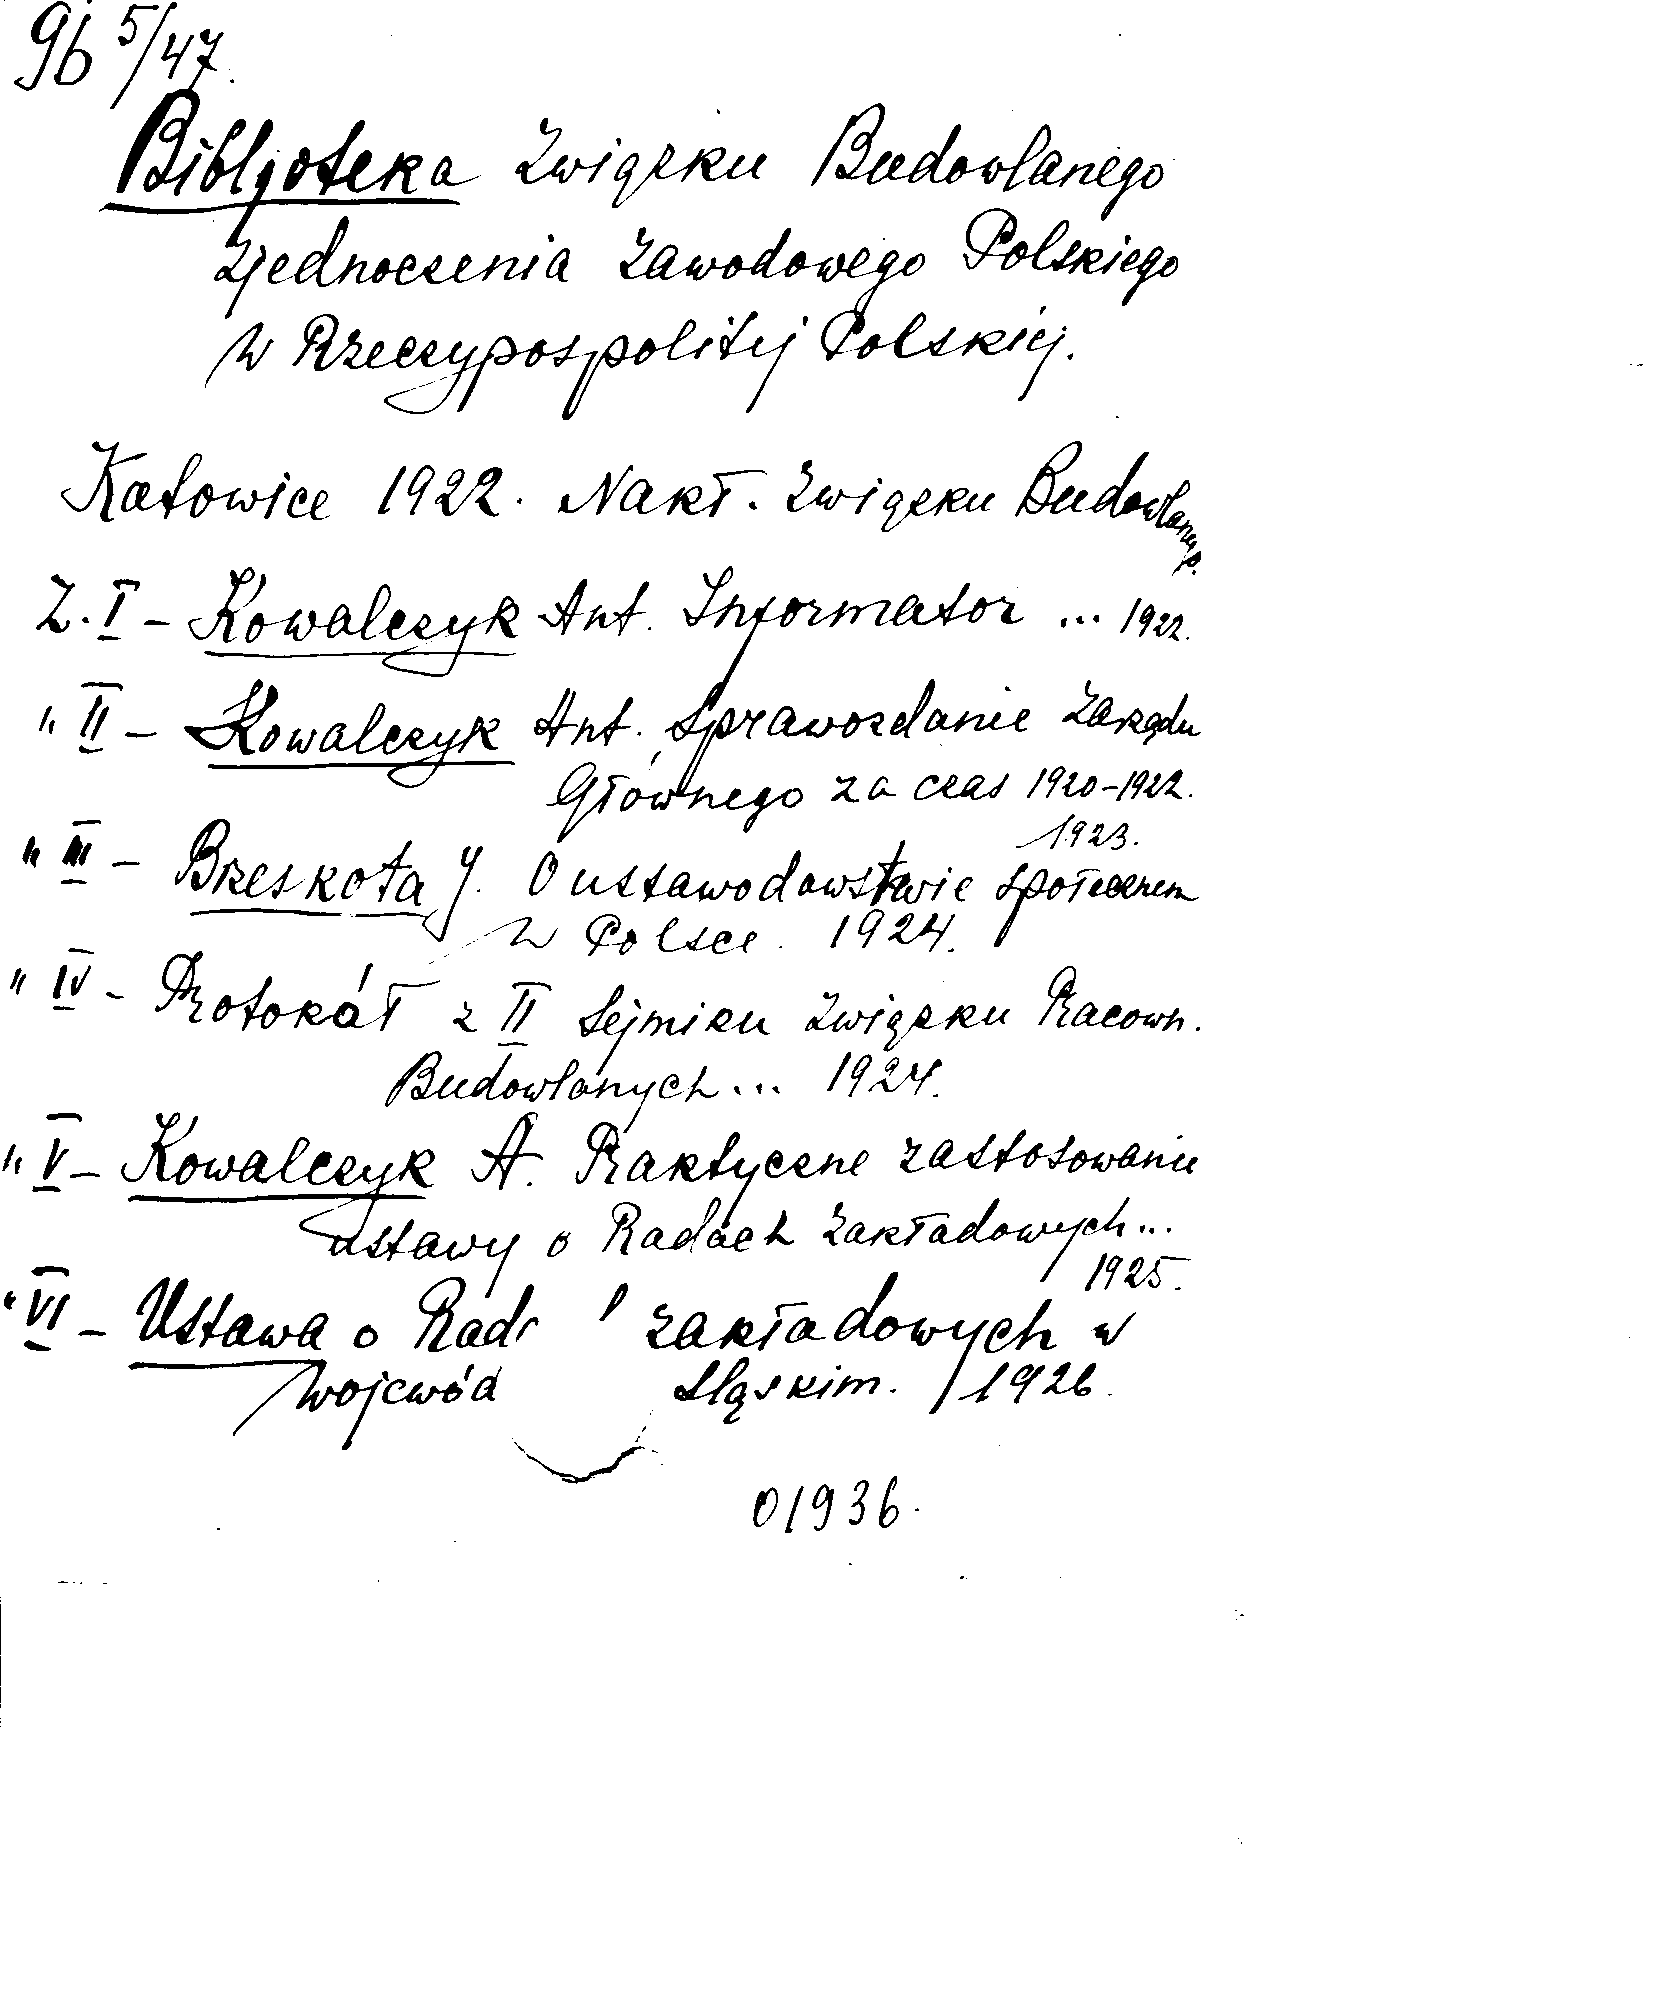 96 5/47.
Bibljoteka Związku Budowlanego
Zjednoczenia Zawodowego Polskiego
w Rzeczypospolitej Polskiej.
Katowice 1922. Nakł. Związku Budowlaneg.
Z. I – Kowalczyk Ant. Informator ... 1922.
" II – Kowalczyk Ant. Sprawozdanie Zarządu
Głównego za czas 1920-1922.
1923.
" III – Brzeskota J. O ustawodawstwie społecznem
w Polsce. 1924.
" IV – Protokół z II Sejmiku Związku Pracown.
Budowlanych ... 1924.
" V – Kowalczyk A. Praktyczne zastosowanie
ustawy o Radach Zakładowych ...
1925.
" VI – Ustawa o Rad zakładowych w
Wojewód Śląskim. 1926.
01936.